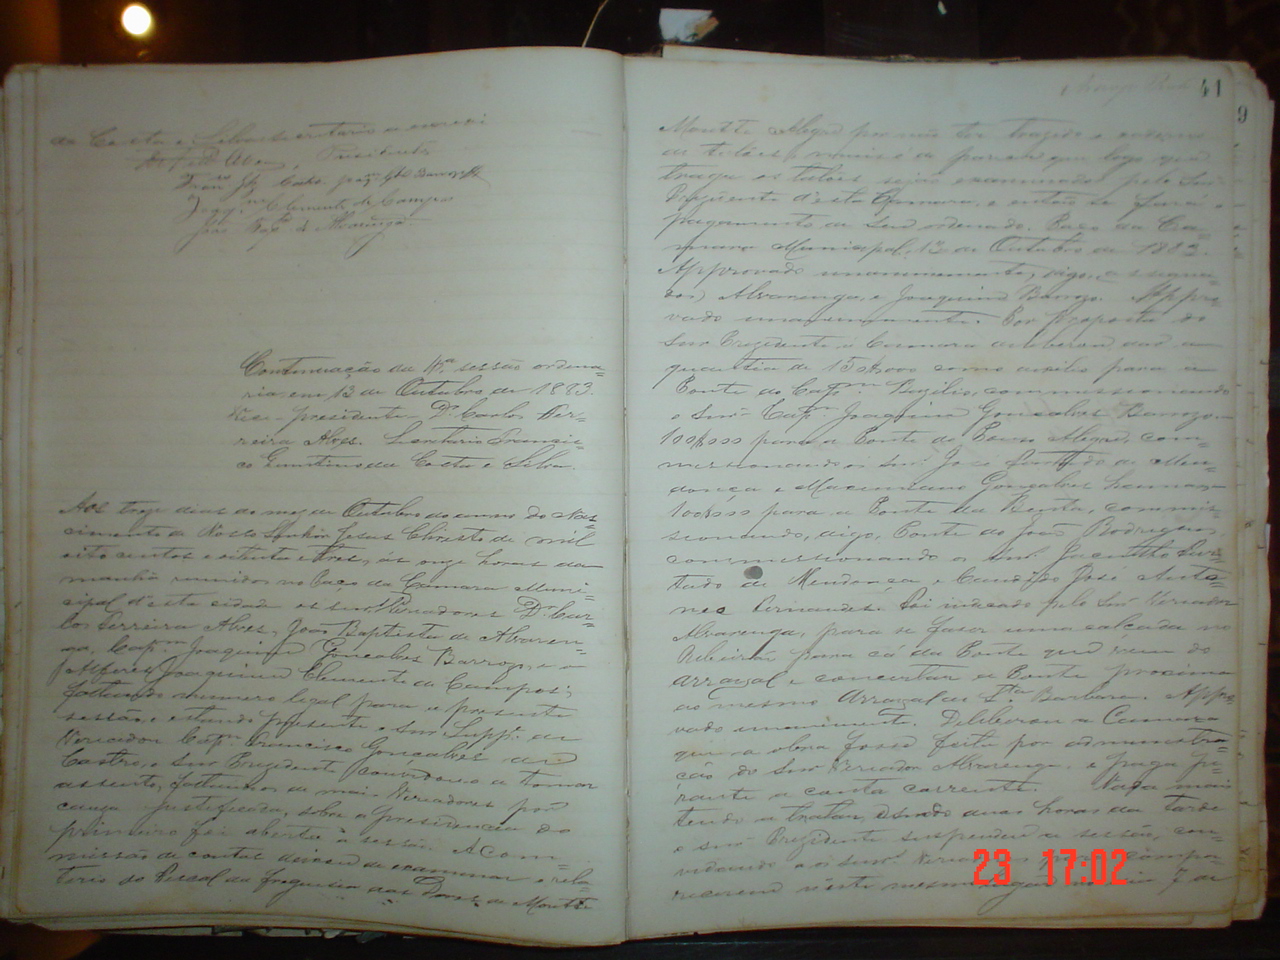 da Costa e Silva secretario a escrevi
Presidente
Joaqm Glz Barroso
Joaqm Clemente de Campos
João Bapta de Alvarenga
Continuação da 4ª sessão ordina=
ria, em 13 de Outubro de 1883.
Vice-presidente Dr Carlos Fer=
reira Alves. Secretario Francis=
co Quintino da Costa e Silva.
Aos treze dias do mez de Outubro do anno do Nas=
cimento de Nosso Senhor Jesus Christo de mil
oito centos e oitenta e tres, ás onze horas da
manhã reunidos no Paço da Camara Muni=
cipal d'esta cidade os snrs Vereadores Dr Car=
los Ferreira Alves, João Baptista de Alvaren=
ga, Capm Joaquim Gonçalves Barroso, e o
Alferes Joaquim Clemente de Campos;
faltando numero legal para a presente
sessão, e estando presente o snr Suppe de
Vereador Capm Francisco Gonçalves de
Castro, o snr Prezidente convidou-o a tomar
assento, faltando os mais Vereadores por
cauza justificada, sob a presidencia do
primeiro foi aberta a sessão. A Com=
missão de contas de examinar o rela=
torio do Fiscal da freguesia das Dores de Monte
41
9
Monte Alegre por não ter trazido o caderno
de talões, é de parecer que logo que
traga os talões sejão examinados pelo Snr
Prezidente d'esta Camara, e então se fará o
pagamento de seu ordenado. Paço da Ca=
mara Municipal, 13 de Outubro de 1883.
Approvado unanimemente, digo,
Alvarenga, e Joaquim Barroso. Appro=
vado unanimemente. Por proposta do
Snr Prezidente a Camara deliberou dar a
quantia de 150$000 como auxilio para a
Ponte do Capm Bazilio, commissionando
o Snr Capm Joaquim Gonsalves Barrozo.
100$000 para a Ponte do Pouso Alegre, com=
missionando os Snrs José Furtado de Men=
donça e Maximiano Gonçalves
100$000 para a Ponte da Benta, commis=
sionando, digo, Ponte do João Rodrigues,
commissionando os snrs Jacintho Fur=
tado de Mendonça, e Candido José Antu=
nes Fernandes. Foi indicado pelo Snr Vereador
Alvarenga, para se faser uma calçada no
Ribeirão para cá da Ponte que vem do
arraial e concertar a Ponte proxima
ao mesmo Arraial de Sta Barbara. Appro=
vado unanimemente. Deliberou a Camara
que a obra fosse feita por administra=
ção do Snr Vereador Alvarenga, e paga
a conta corrente. Nada mais
tendo a tratar, e sendo duas horas da tarde
o snr Prezidente suspendeu a sessão, con=
vidando aos snrs Vereadores para compa=
recerem n'este mesmo lugar no dia 7 de
23 17:02